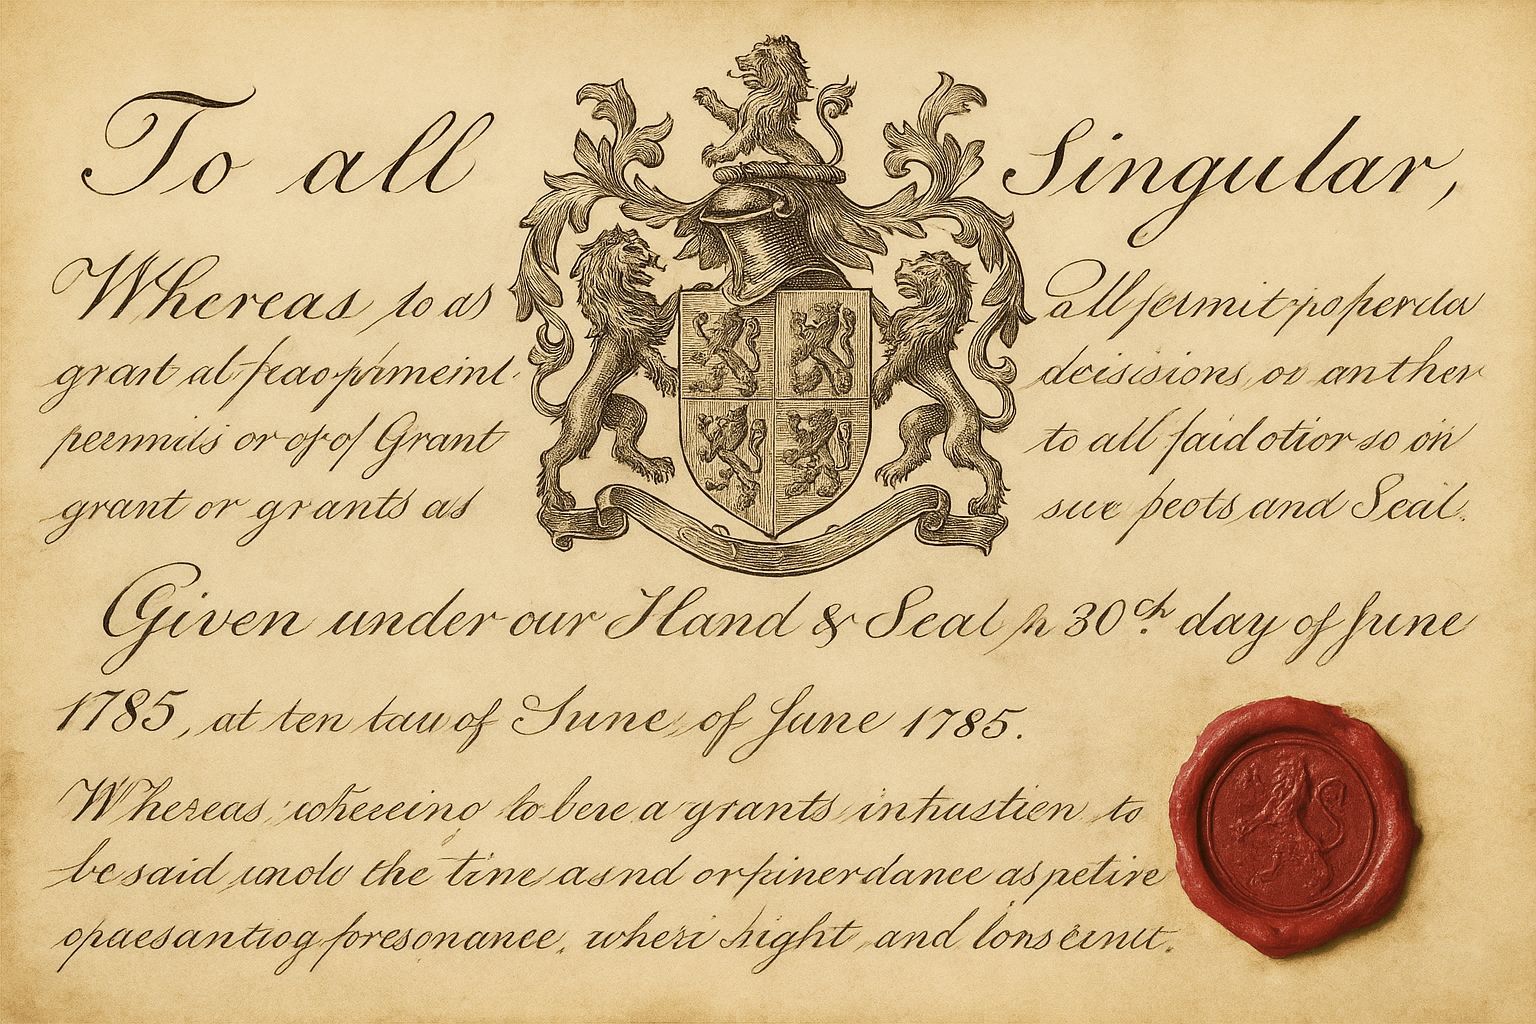 To all Singular,
Whereas to as all permit poperda
grant al
decisisions, or anther
or of of Grant to all said otior so on
grant or grants as sue peots and Seal.
Given under our Hand & Seal 30th day of June
1785, at ten tau of June, of June 1785.
Whereas to bere a grants inhustien to
be said the tine asnd orpinerdance as petire
opaesantiog foresonance. wheri hight and